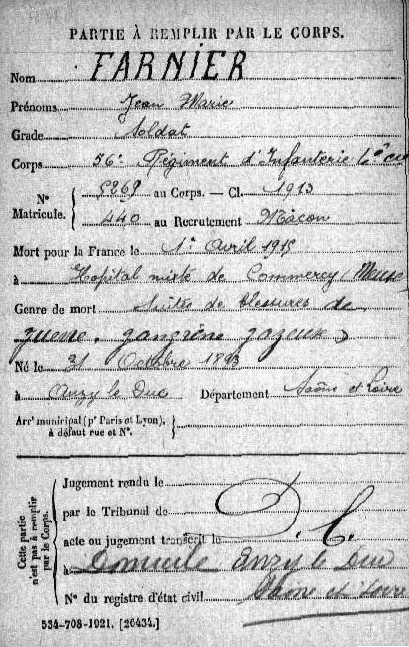 PARTIE À REMPLIR PAR LE CORPS.
Nom FARNIER
Prénoms Jean Marie
Grade Soldat
Corps 56e Régiment d'Infanterie
N° Matricule. { 5269 au Corps. — Cl. 1913
440 au Recrutement Mâcon
Mort pour la France le 1er Avril 1915
à Hopital mixte de Commercy (Meuse
Genre de mort Suites de blessures de
guerre, gangrène gazeuse)
Né le 31 Octobre 1893
à Anzy le Duc Département Saône et Loire
Arrt municipal (pr Paris et Lyon), à défaut rue et N°. }
Cette partie n'est pas à remplir par le Corps. { Jugement rendu le
par le Tribunal de
acte ou jugement transcrit le D. C.
à Domicile Anzy le Duc
N° du registre d'état civil Saône et Loire
534-708-1921. [26434.]